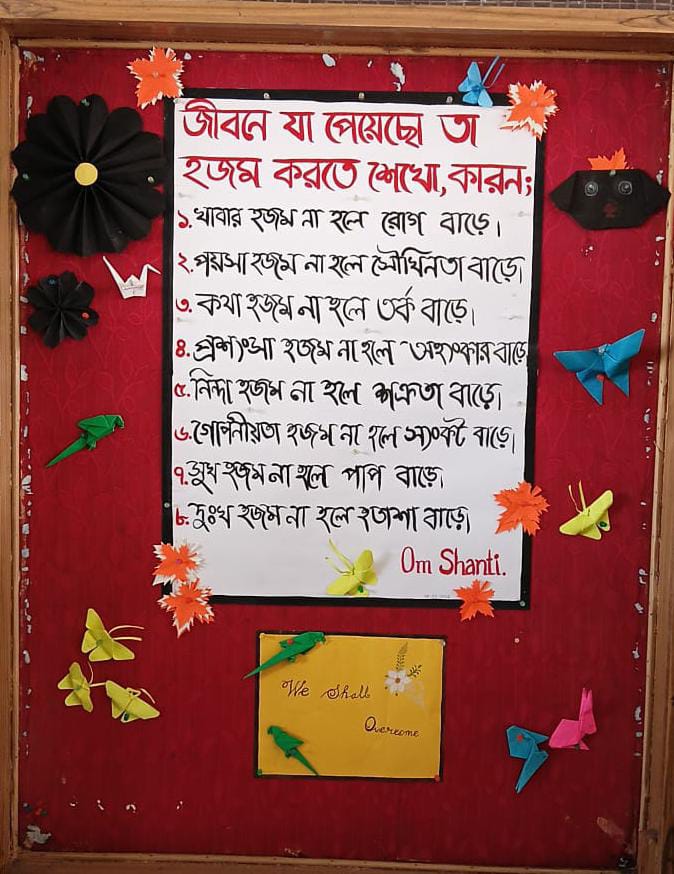 জীবনে যা পেয়েছো তা
হজম করতে শেখো, কারন;
১. খাবার হজম না হলে রোগ বাড়ে।
২. পয়সা হজম না হলে সৌখিনতা বাড়ে।
৩. কথা হজম না হলে তর্ক বাড়ে।
৪. প্রশংসা হজম না হলে অহংকার বাড়ে
৫. নিন্দা হজম না হলে শত্রুতা বাড়ে।
৬. গোপনীয়তা হজম না হলে সংকট বাড়ে।
৭. সুখ হজম না হলে পাপ বাড়ে।
৮. দুঃখ হজম না হলে হতাশা বাড়ে।
Om Shanti.
We Shall
Overcome